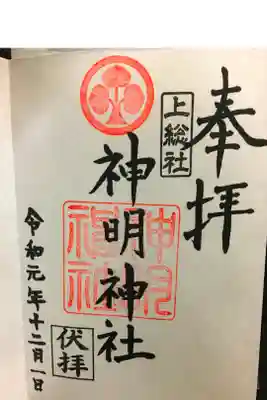 奉拝
上総社
神明神社
神明神社
伏拝
令和元年十二月一日